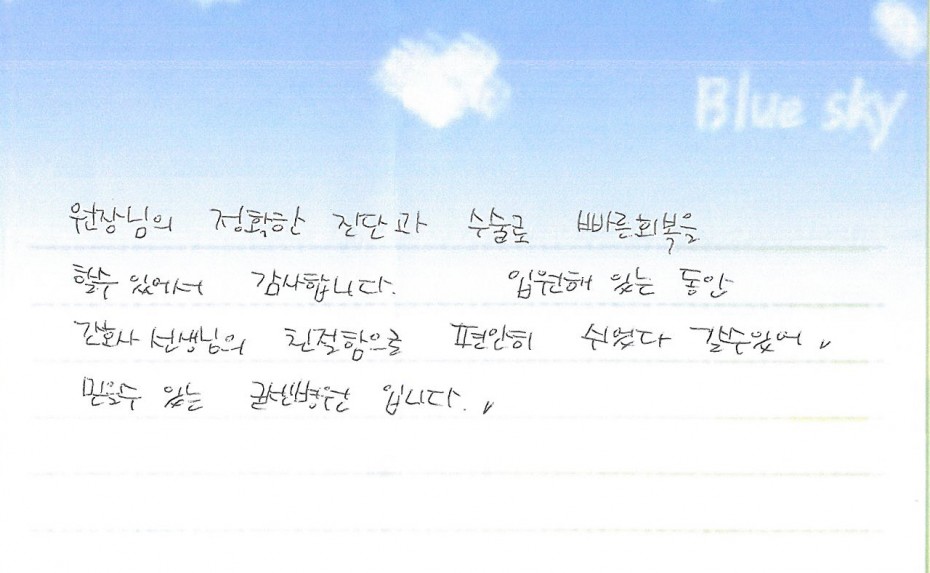 Blue sky
원장님의 정확한 진단과 수술로 빠른회복을
할수 있어서 감사합니다. 입원해 있는 동안
간호사 선생님의 친절함으로 편안히 쉬었다 갈수있어
믿을수 있는 입니다.